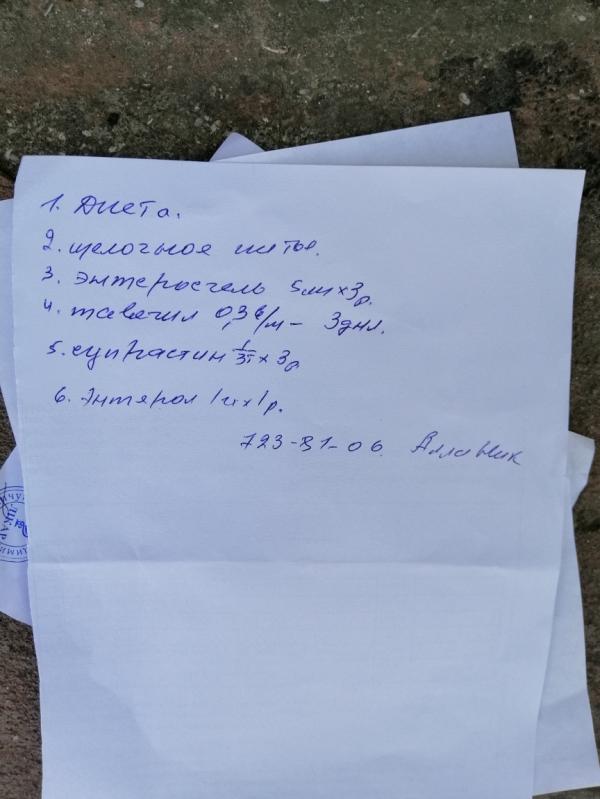 1. Диета.
2. щелочное питье.
3. энтеросгель 5мл x 3р.
4. тавегил 0,3 в/м - 3 дня.
5. супрастин 1/3т x 3р
6. Энтерол 1 x 1р.
723-31-06